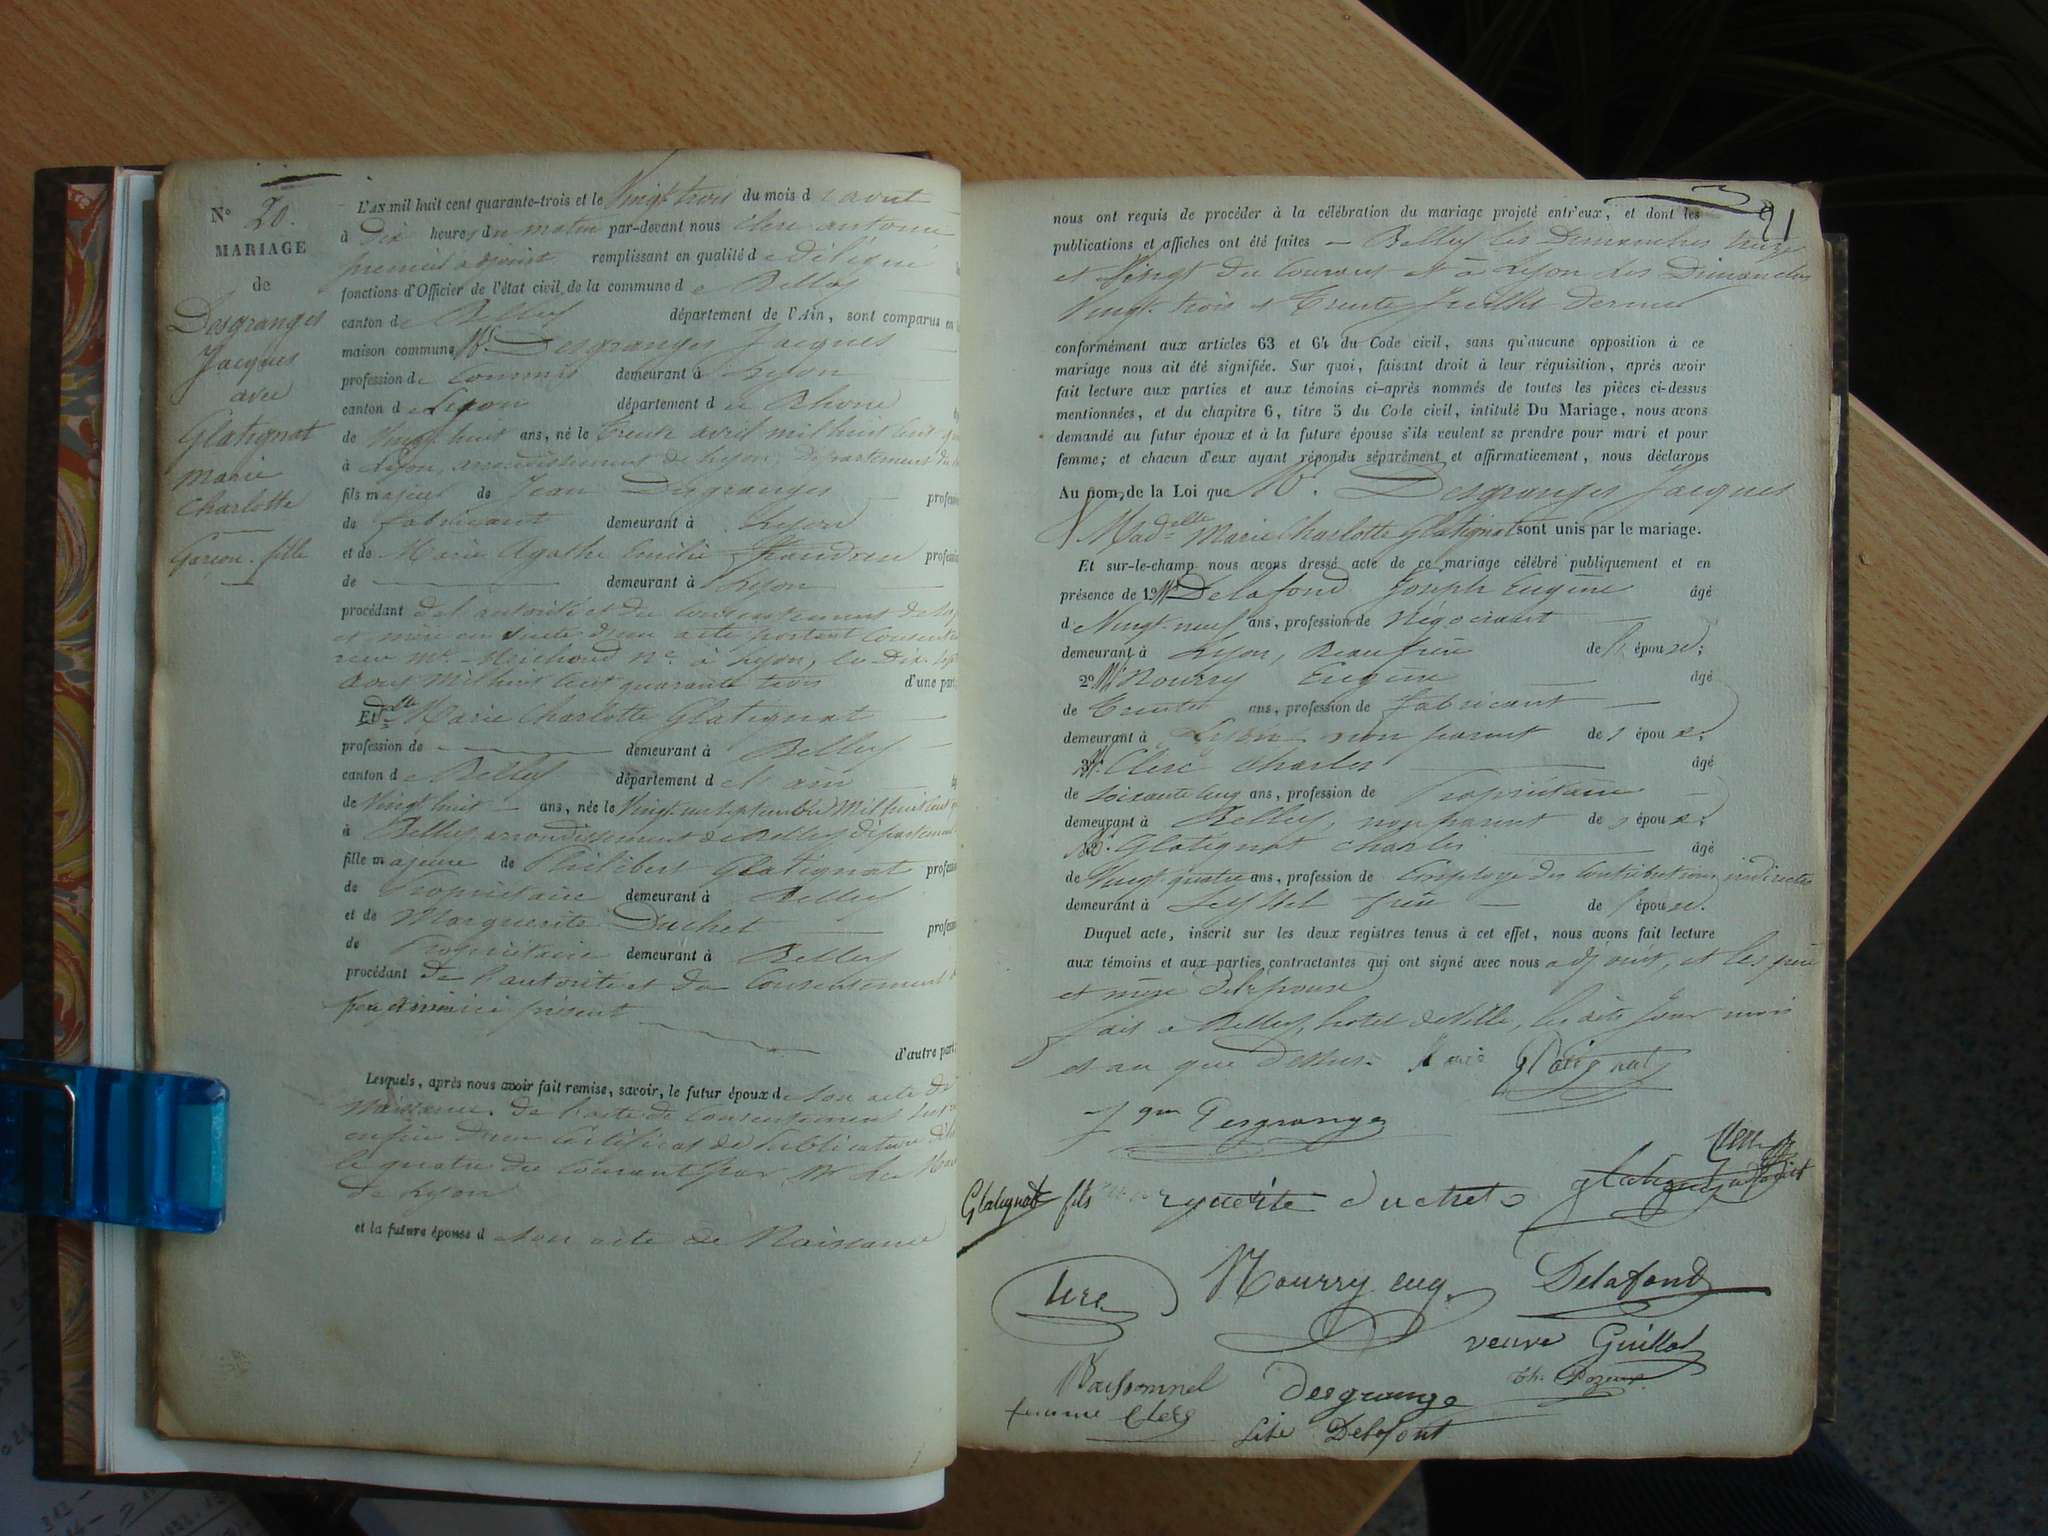 N° 20.
MARIAGE
de
Desgranges
Jacques
avec
Glatignat
Marie
Charlotte
Garçon. fille
L'AN mil huit cent quarante-trois et le Vingt trois du mois d'aout
à Dix heures du matin par-devant nous Clerc antoine
premier adjoint remplissant en qualité de délégué
fonctions d'Officier de l'état civil de la commune de Belley
canton de Belley département de l'Ain, sont comparus en
maison commune Mr. Desgranges Jacques
profession de Commis demeurant à Lyon
canton de Lyon département de Rhone
de Vingt huit ans, né le Treize avril mil huit cent
à Lyon, arrondissement de Lyon, Département du
fils majeur de Jean Desgranges
de fabricant demeurant à Lyon
et de Marie Agathe
de demeurant à Lyon
procédant de l'autorité et du consentement de
et mère en suite d'un acte portant
Mr. né. à Lyon, le Dix
aout mil huit cent quarante trois d'une part
Et Dlle Marie Charlotte Glatignat
profession de demeurant à Belley
canton de Belley département de l'ain
de Vingt huit ans, née le Vingt septembre mil huit cent
à Belley, arrondissement de Belley, département
fille majeure de Philibert Glatignat
de Propriétaire demeurant à Belley
et de Marguerite Duchet
de Propriétaire demeurant à Belley
procédant de l'autorité et du Consentement
père et mère ici présent
d'autre part
Lesquels, après nous avoir fait remise, savoir, le futur époux de son acte de
naissance. De l'acte de consentement
enfin d'un Certificat de Publication
le quatre du Courant par Mr le
de Lyon
et la future épouse de son acte de Naissance
91
nous ont requis de procéder à la célébration du mariage projeté entr'eux, et dont les
publications et affiches ont été faites à Belley les Dimanches treize
et Vingt du Courant et à Lyon les Dimanches
Vingt trois et Trente Juillet dernier
conformément aux articles 63 et 64 du Code civil, sans qu'aucune opposition à ce
mariage nous ait été signifiée. Sur quoi, faisant droit à leur réquisition, après avoir
fait lecture aux parties et aux témoins ci-après nommés de toutes les pièces ci-dessus
mentionnées, et du chapitre 6, titre 5 du Code civil, intitulé Du Mariage, nous avons
demandé au futur époux et à la future épouse s'ils veulent se prendre pour mari et pour
femme; et chacun d'eux ayant répondu séparément et affirmativement, nous déclarons
Au nom de la Loi que Mr. Desgranges Jacques
Madelle Marie Charlotte Glatignat sont unis par le mariage.
Et sur-le-champ nous avons dressé acte de ce mariage célébré publiquement et en
présence de 1° Mr Delafond Joseph Eugène âgé
de Vingt neuf ans, profession de Négociant
demeurant à Lyon, Beau frère de l'épouse;
2° Mr Nourry Eugène âgé
de Trente ans, profession de fabricant
demeurant à Lyon non parent des époux;
3° Mr. Clerc Charles âgé
de soixante cinq ans, profession de Propriétaire
demeurant à Belley, non parent des époux;
Glatignat Charles âgé
de Vingt quatre ans, profession de Employé des Contributions indirectes
demeurant à Seyssel frère de l'épouse.
Duquel acte, inscrit sur les deux registres tenus à cet effet, nous avons fait lecture
aux témoins et aux parties contractantes qui ont signé avec nous adjoint, et les père
et mère de l'épouse
fait à Belley, hotel de Ville, les dits Jour mois
et an que Dessus. Marie Glatignat
Jques Desgranges
Glatignat fils
Marguerite duchet
Clerc
Nourry eug.
Delafond
veuve Guillot
femme Clerc
Desgrange
Delafont